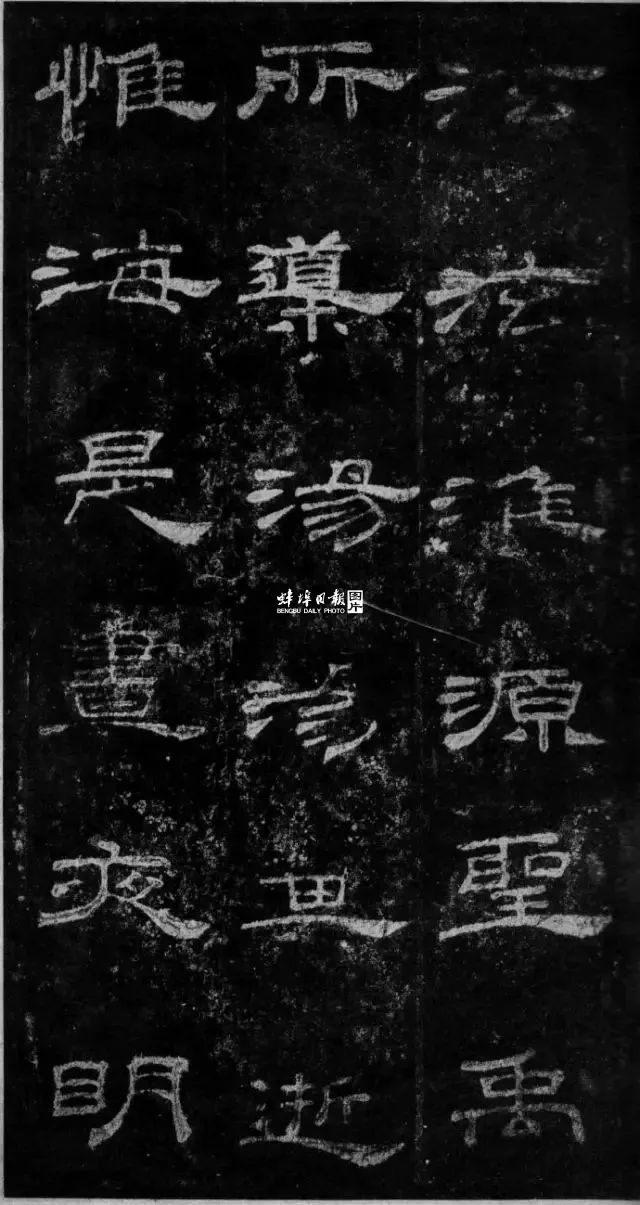 泫泫淮源聖禹
所導湯湯其逝
惟海是晝夜明
蚌埠日報图片
BENGBU DAILY PHOTO